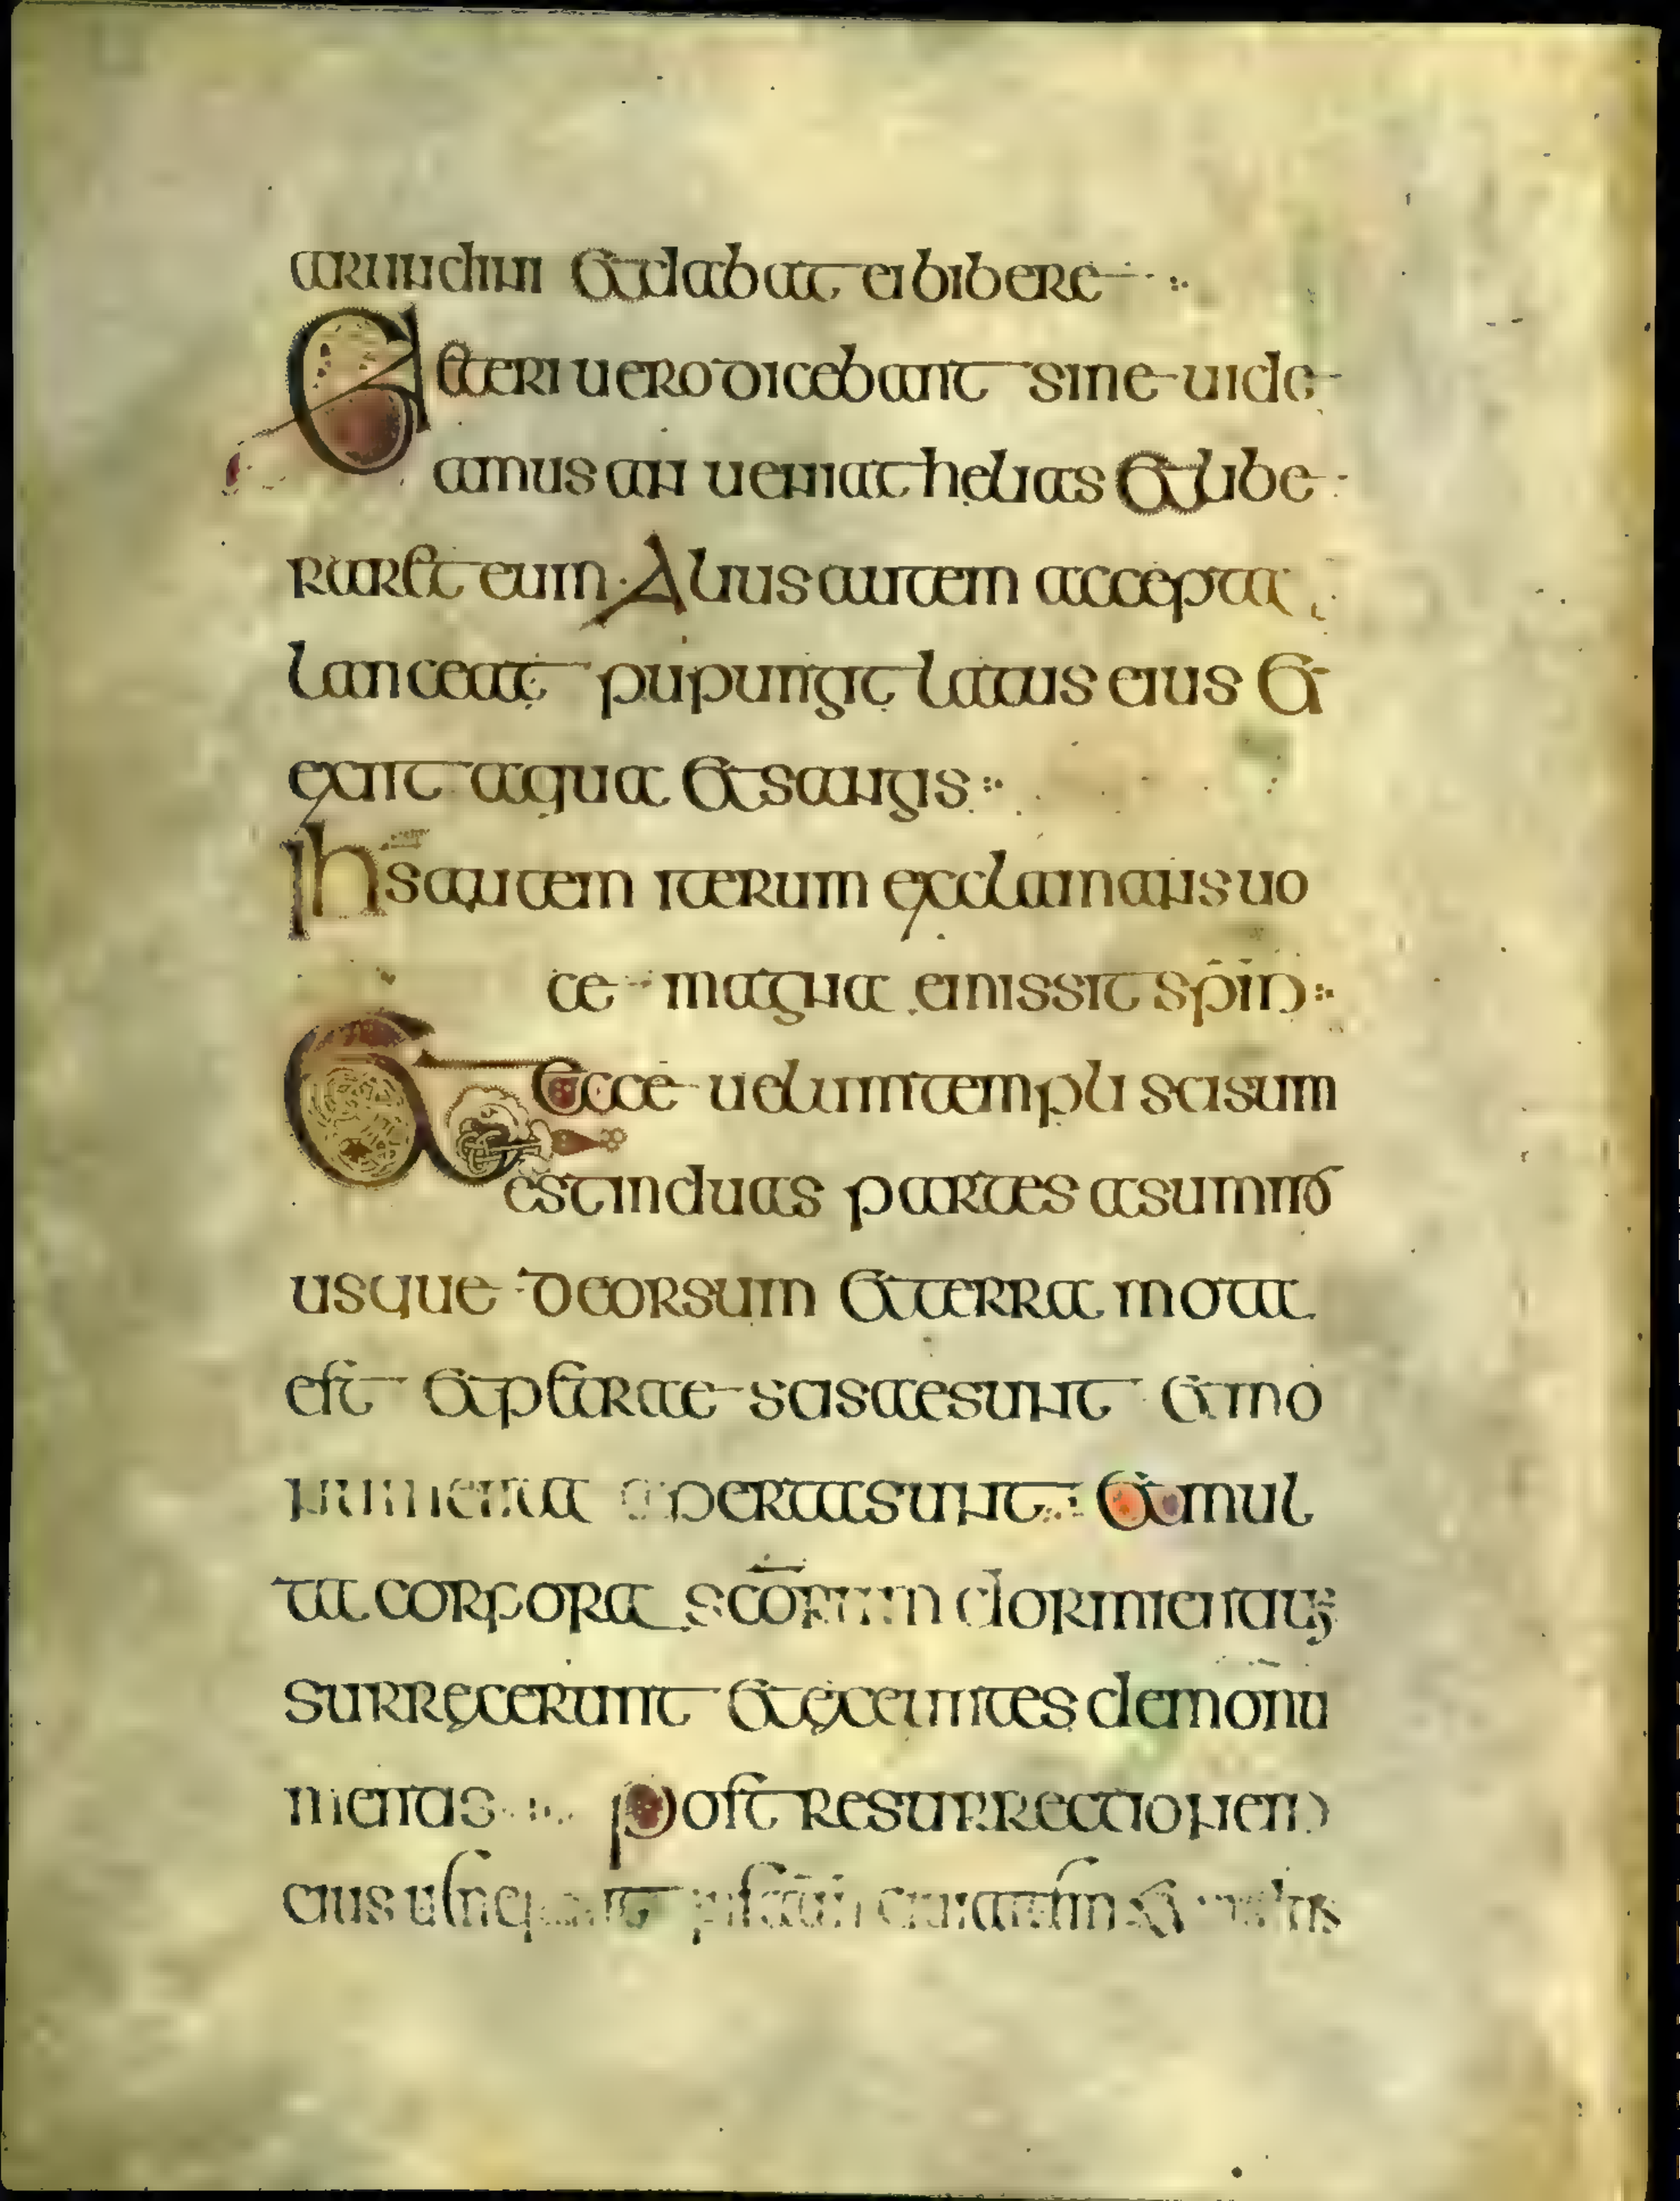 arundini et dabat ei bibere
Ceteri uero dicebant sine uide
amus an ueniat helias et libe
raret eum · Alius autem accepta
lanceat pupungit latus eius et
exiit aqua et sangis
Ihs̄ autem iterum exclamans uo
ce magna emissit sp̄m
Et ecce uelum templi scisum
est in duas partes a summo
usque deorsum et terra mota
est et petrae scisae sunt et mo
numenta aperta sunt et mul
ta corpora sc̄orum dormientaų
surrexerunt et exeuntes de monu
mentas Post resurrectionem
eius